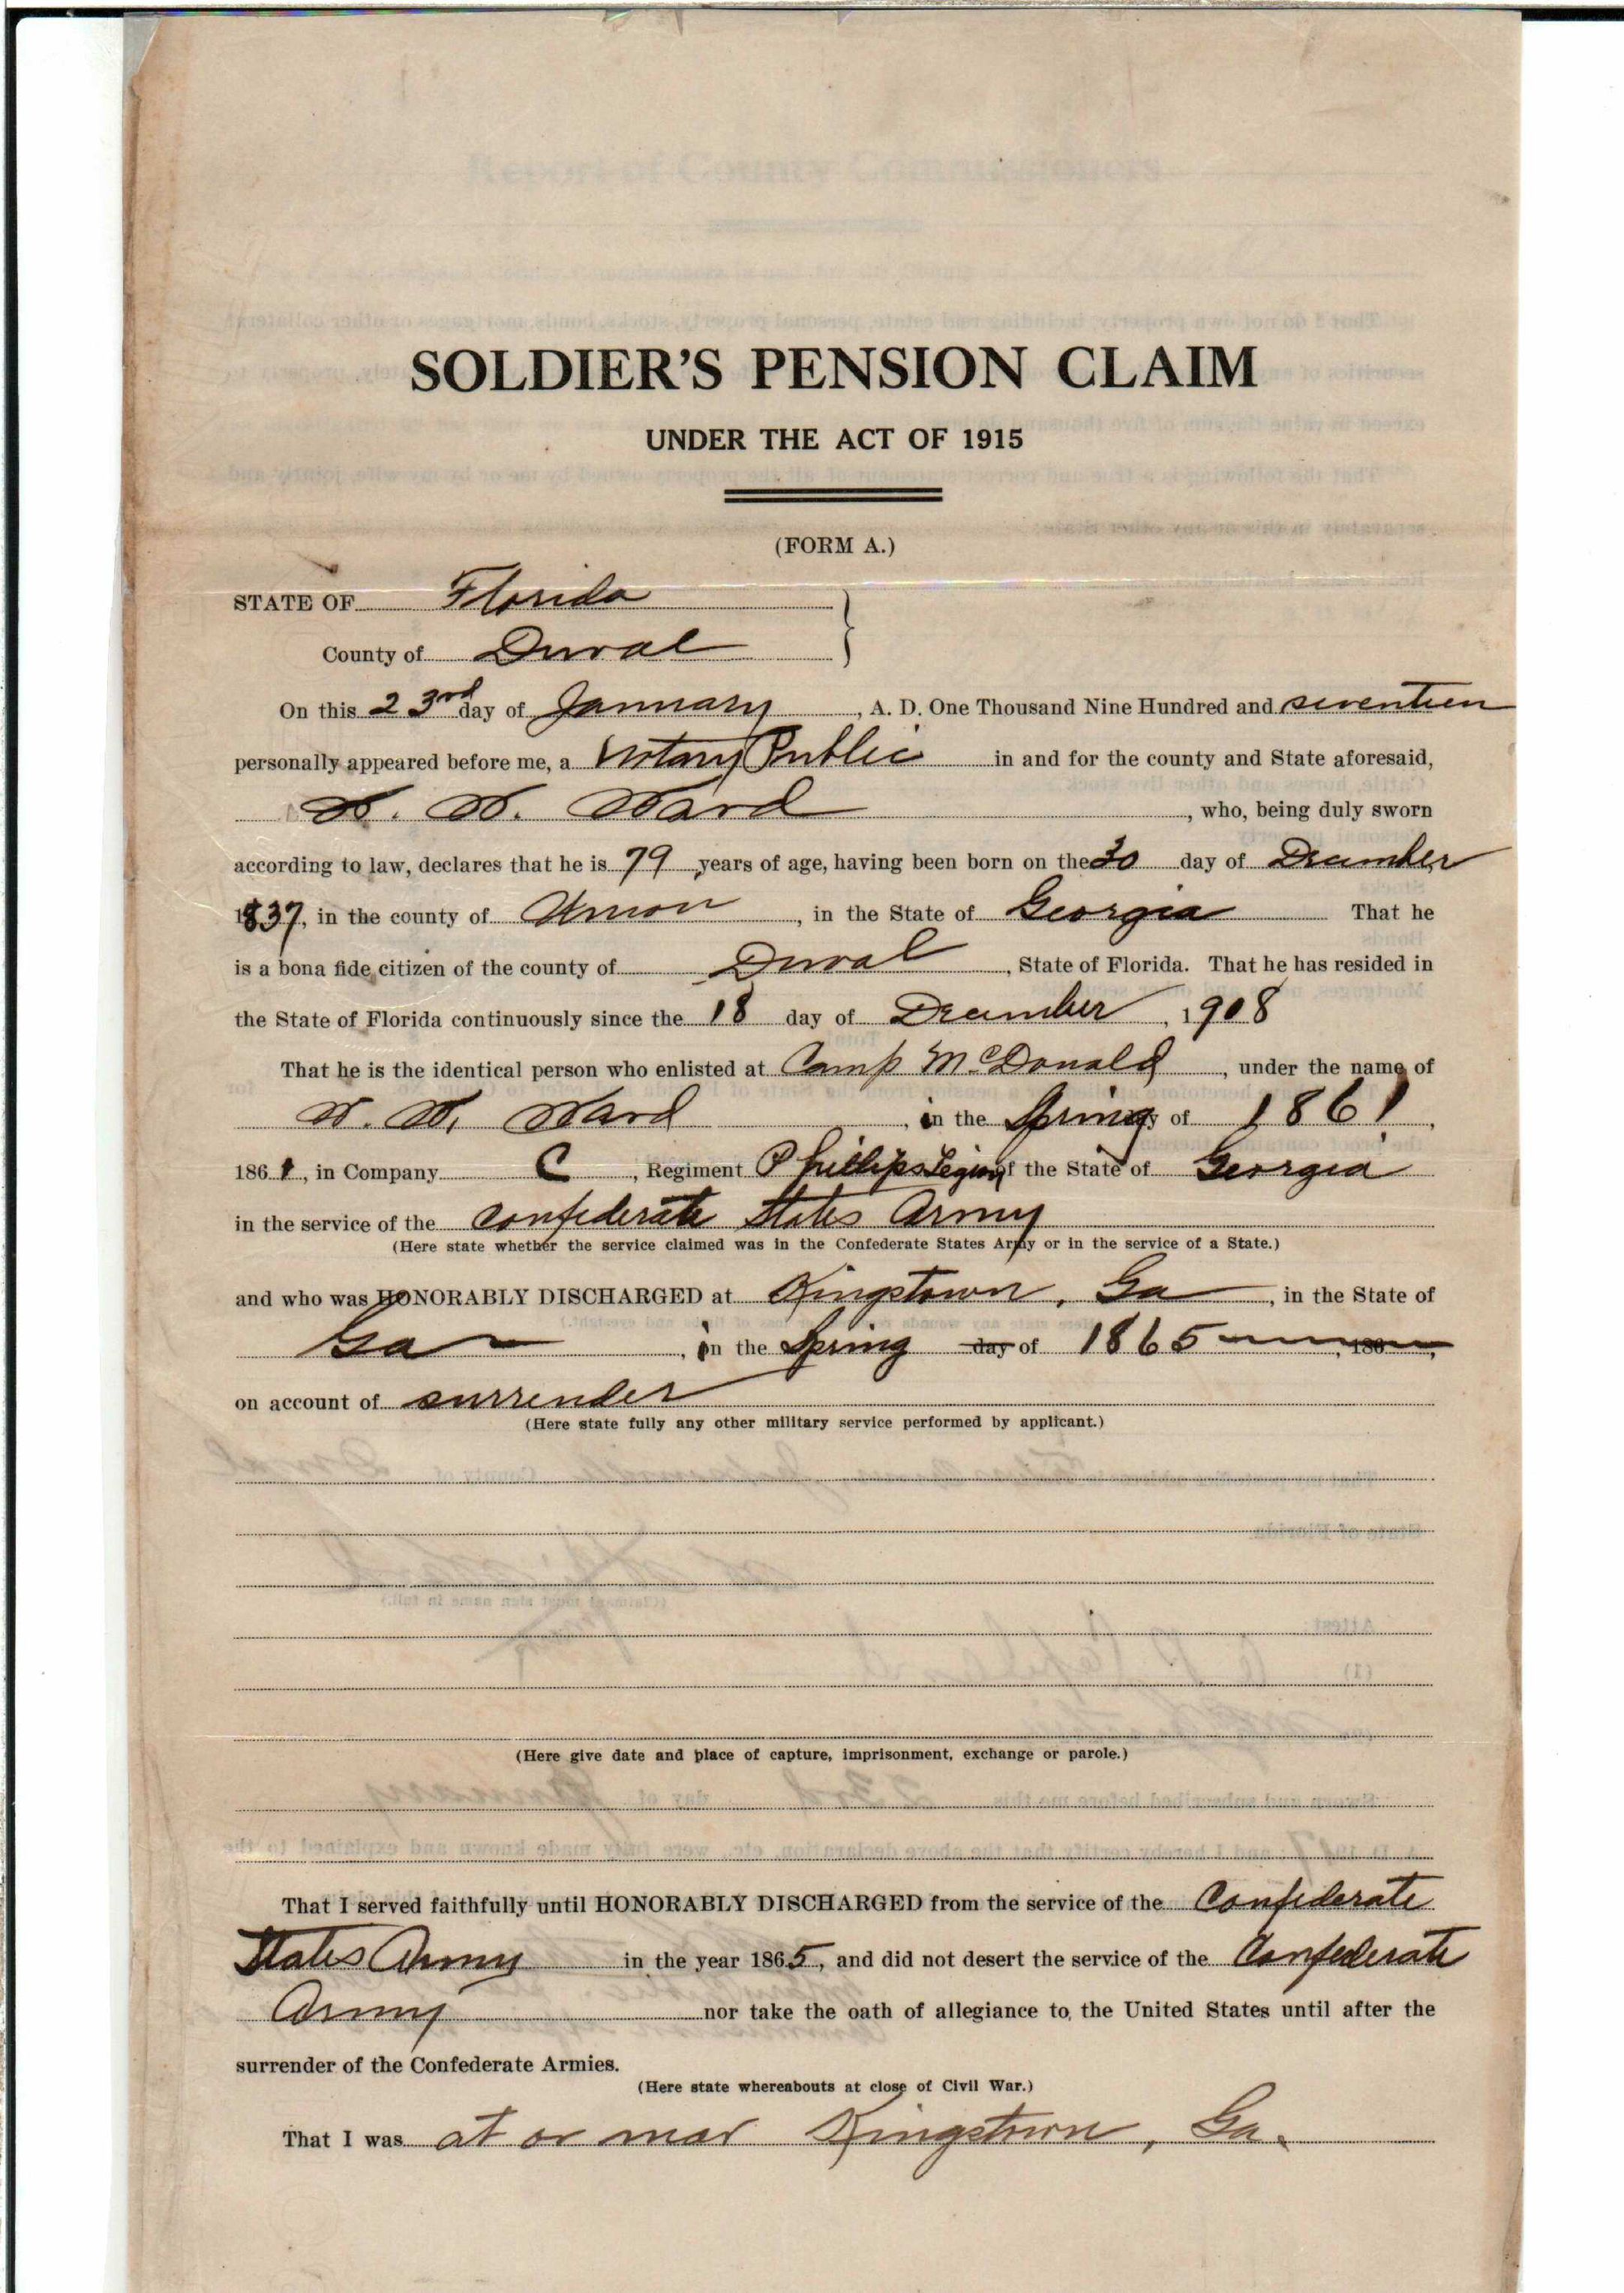 SOLDIER'S PENSION CLAIM
UNDER THE ACT OF 1915
(FORM A.)
STATE OF Florida
County of Duval
On this 23rd day of January, A. D. One Thousand Nine Hundred and seventeen
personally appeared before me, a Notary Public in and for the county and State aforesaid,
W. W. Ward, who, being duly sworn
according to law, declares that he is 79 years of age, having been born on the 30 day of December
1837, in the county of Union, in the State of Georgia That he
is a bona fide citizen of the county of Duval, State of Florida. That he has resided in
the State of Florida continuously since the 18 day of December, 1908
That he is the identical person who enlisted at Camp McDonald, under the name of
W. W. Ward, in the Spring of 1861,
1861, in Company C, Regiment Phillips Legion of the State of Georgia
in the service of the Confederate States Army
(Here state whether the service claimed was in the Confederate States Army or in the service of a State.)
and who was HONORABLY DISCHARGED at Kingstown, Ga, in the State of
Ga, in the Spring day of 1865, 186
on account of surrender
(Here state fully any other military service performed by applicant.)
(Here give date and place of capture, imprisonment, exchange or parole.)
That I served faithfully until HONORABLY DISCHARGED from the service of the Confederate
States Army in the year 1865, and did not desert the service of the Confederate
Army nor take the oath of allegiance to the United States until after the
surrender of the Confederate Armies.
(Here state whereabouts at close of Civil War.)
That I was at or near Kingstown, Ga.